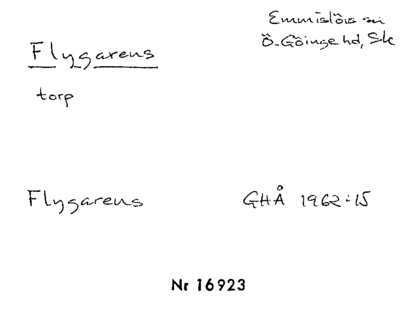 Flygarens
Emmislöv sn
Ö. Göinge hd, Sk
torp
Flygarens
GHÅ 1962:15
Nr 16923